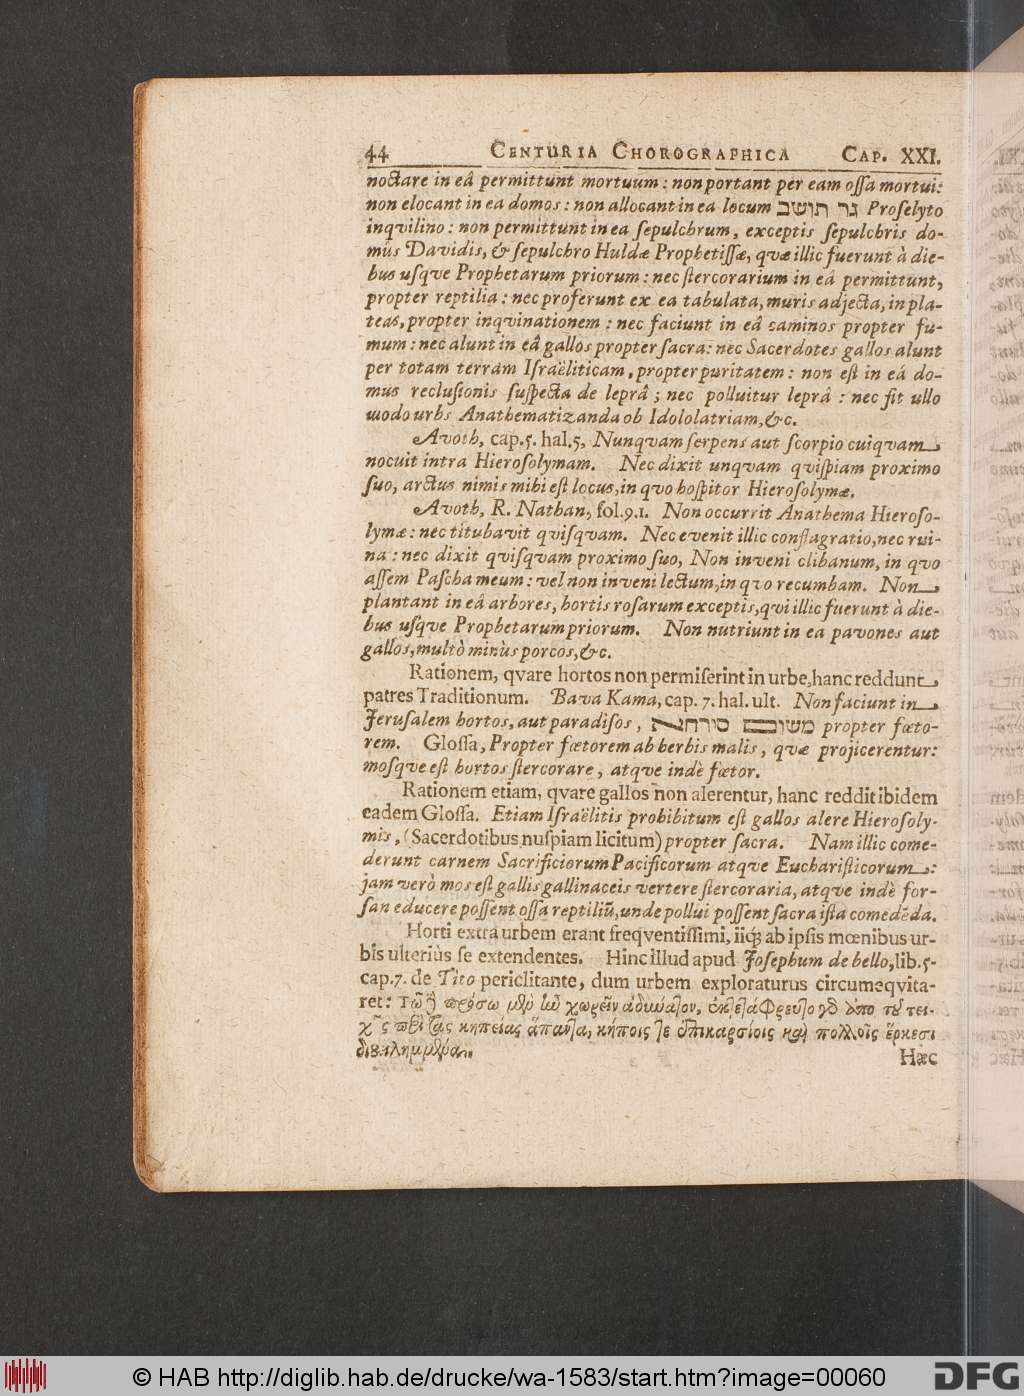 44 CENTURIA CHOROGRAPHICA CAP. XXI.
noctare in eâ permittunt mortuum: non portant per eam ossa mortui:
non elocant in ea domos: non allocant in ea locum גר תושב Proselyto
inqvilino: non permittunt in ea sepulchrum, exceptis sepulchris do-
mûs Davidis, & sepulchro Huldæ Prophetissæ, qvæ illic fuerunt à die-
bus usqve Prophetarum priorum: nec stercorarium in eâ permittunt,
propter reptilia: nec proferunt ex ea tabulata, muris adjecta, in pla-
teas, propter inqvinationem: nec faciunt in eâ caminos propter fu-
mum: nec alunt in eâ gallos propter sacra: nec Sacerdotes gallos alunt
per totam terram Israëliticam, propter puritatem: non est in eá do-
mus reclusionis suspecta de leprâ; nec polluitur leprâ: nec fit ullo
modo urbs Anathematizanda ob Idololatriam, &c.
Avoth, cap. 5. hal. 5, Nunqvam serpens aut scorpio cuiqvam
nocuit intra Hierosolymam. Nec dixit unqvam qvispiam proximo
suo, arctus nimis mihi est locus, in qvo hospitor Hierosolymæ.
Avoth, R. Nathan, fol. 9. 1. Non occurrit Anathema Hieroso-
lymæ: nec titubavit qvisqvam. Nec evenit illic conflagratio, nec rui-
na: nec dixit qvisqvam proximo suo, Non inveni clibanum, in qvo
assem Pascha meum: vel non inveni lectum, in qvo recumbam. Non
plantant in eâ arbores, hortis rosarum exceptis, qvi illic fuerunt à die-
bus usqve Prophetarum priorum. Non nutriunt in ea pavones aut
gallos, multò minùs porcos, &c.
Rationem, qvare hortos non permiserint in urbe, hanc reddunt
patres Traditionum. Bava Kama, cap. 7. hal. ult. Non faciunt in
Jerusalem hortos, aut paradisos, משום סורחא propter fœto-
rem. Glossa, Propter fœtorem ab herbis malis, qvæ projicerentur:
mosqve est hortos stercorare, atqve indè fœtor.
Rationem etiam, qvare gallos non alerentur, hanc reddit ibidem
eadem Glossa. Etiam Israëlitis prohibitum est gallos alere Hierosoly-
mis, (Sacerdotibus nuspiam licitum) propter sacra. Nam illic come-
derunt carnem Sacrificiorum Pacificorum atqve Eucharisticorum:
jam verò mos est gallis gallinaceis vertere stercoraria, atqve indè for-
san educere possent ossa reptiliū, unde pollui possent sacra ista comedēda.
Horti extra urbem erant freqventissimi, iiq; ab ipsis mœnibus ur-
bis ulteriùs se extendentes. Hinc illud apud Josephum de bello, lib. 5.
cap. 7. de Tito periclitante, dum urbem exploraturus circumeqvita-
ret: Τῶ ἢ πρόσω μὲν ἦν χωρεῖν ἀδύνατον, ἐκτετάφρευτο γὸ ἀπο τοῦ τεί-
χους περὶ τὰς κηπείας ἅπαντα, κήποις τε ἐπικαρσίοις καὶ πολλοῖς ἕρκεσι
διειλημμένα.
Hæc
© HAB http://diglib.hab.de/drucke/wa-1583/start.htm?image=00060
DFG